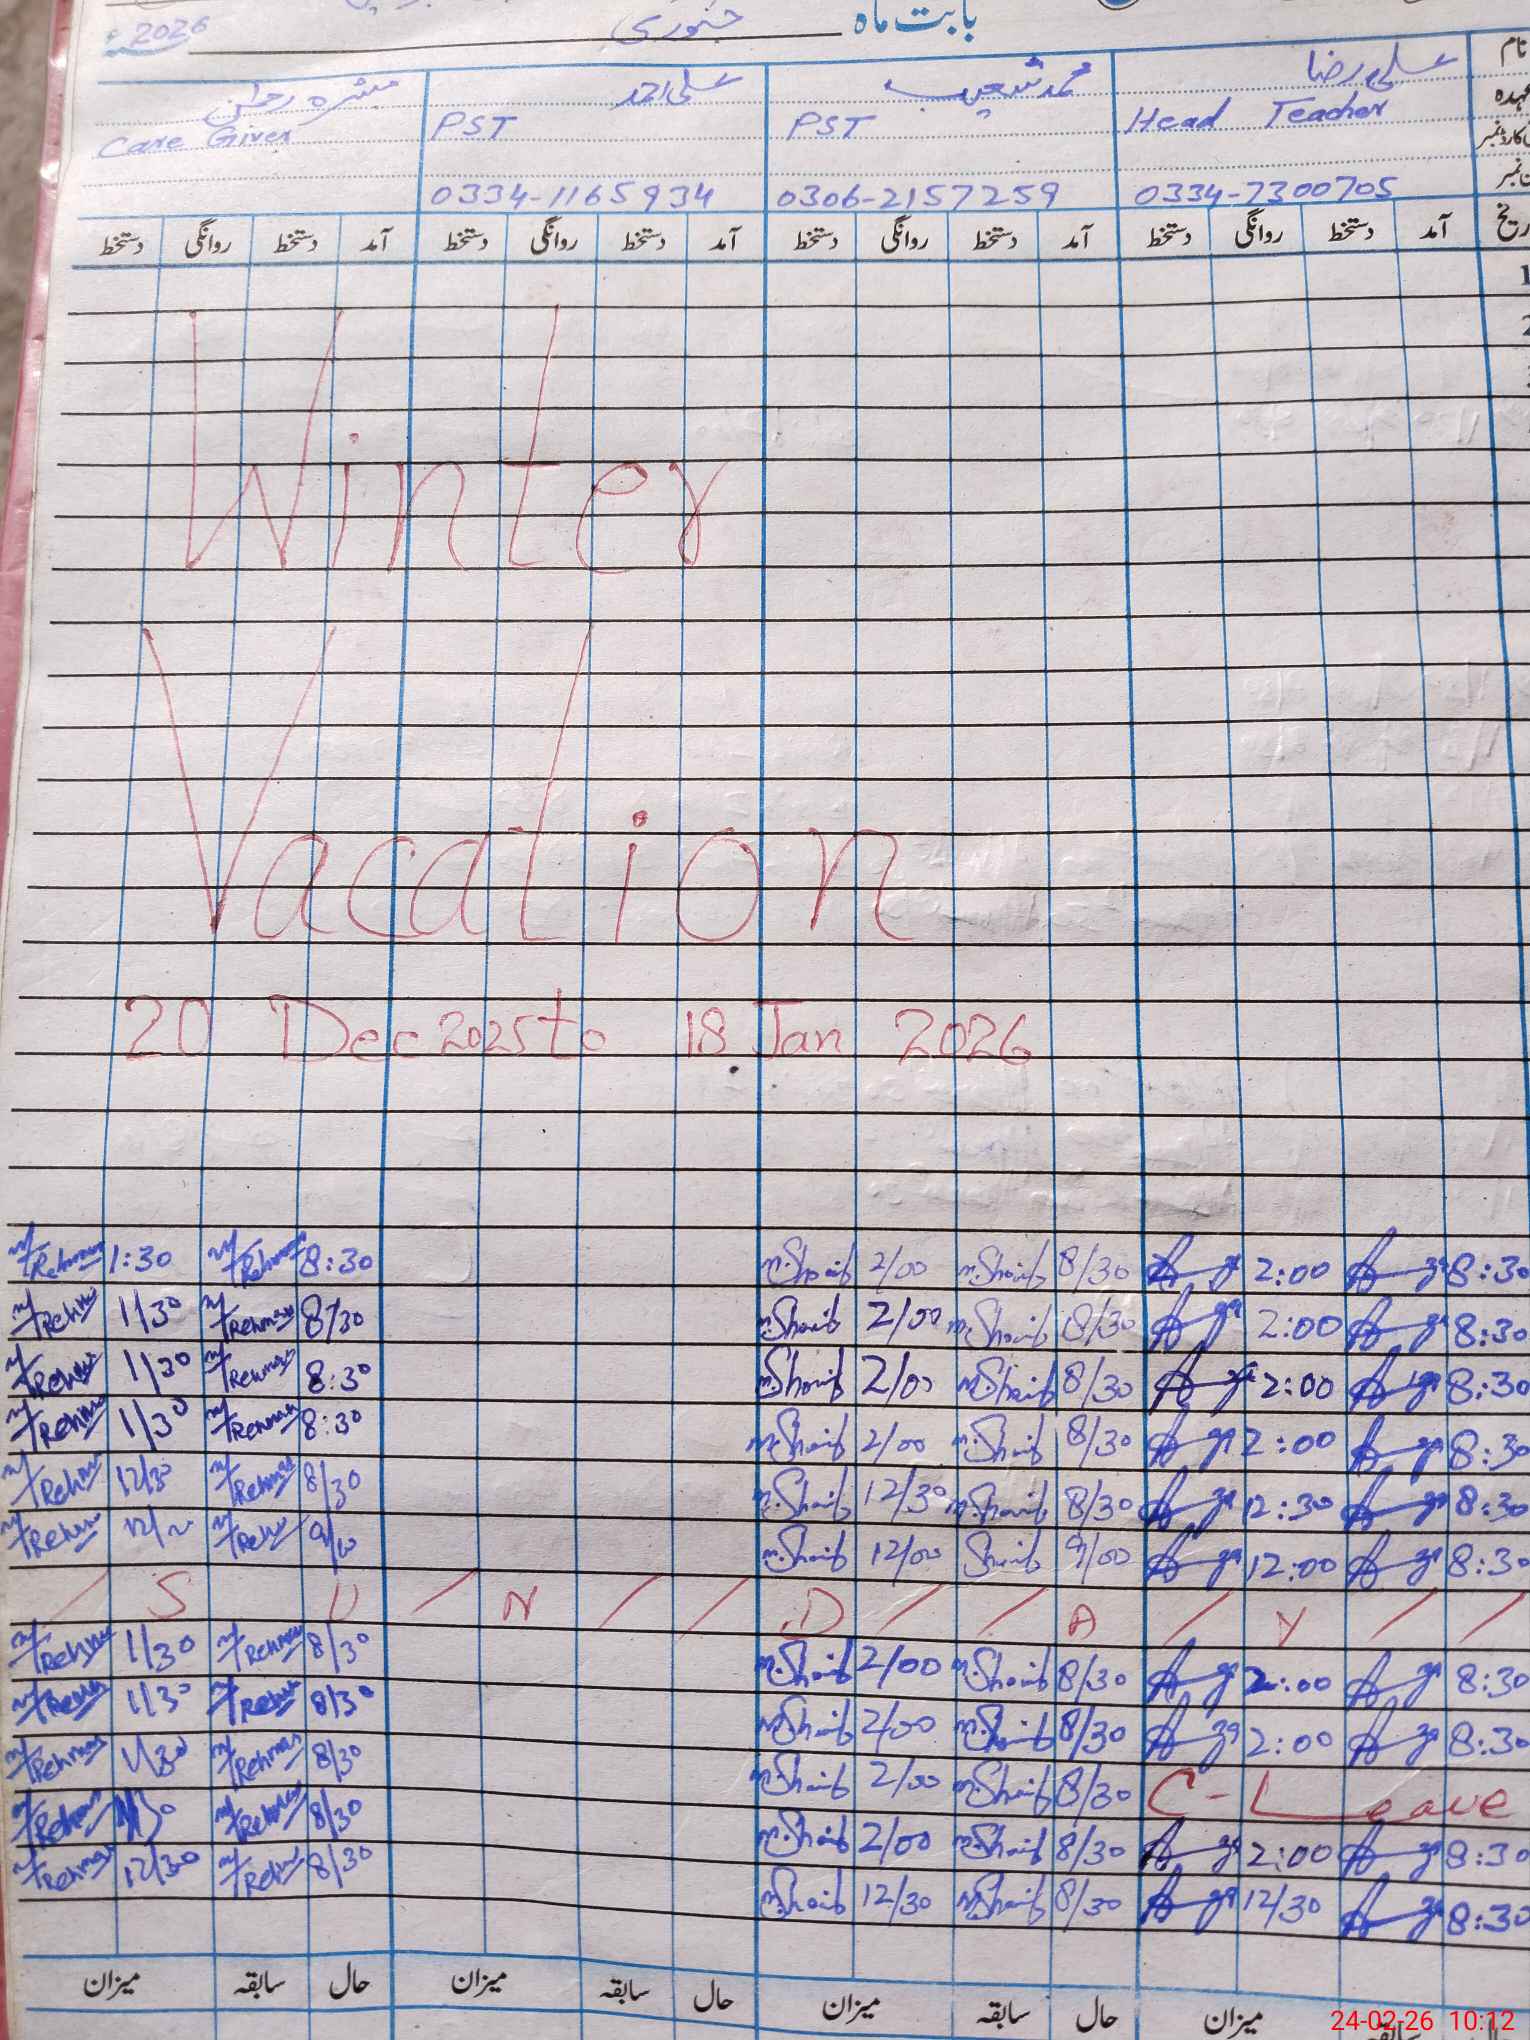 بابت ماہ جنوری 2026ء
نام علی رضا محمد شعیب علی احمد مبشرہ رحمٰن
عہدہ Head Teacher PST PST Care Giver
0334-7300705 0306-2157259 0334-1165934
آمد دستخط روانگی دستخط آمد دستخط روانگی دستخط آمد دستخط روانگی دستخط آمد دستخط روانگی دستخط
1
2
Winter
Vacation
20 Dec 2025 to 18 Jan 2026
M Rehman 1:30 M Rehman 8:30 M.Shoaib 2/00 M.Shoaib 8/30 2:00 8:30
M Rehman 1/30 M Rehman 8/30 M.Shoaib 2/00 M.Shoaib 8/30 2:00 8:30
M Rehman 1/30 M Rehman 8:30 M.Shoaib 2/00 M.Shoaib 8/30 2:00 8:30
M Rehman 1/30 M Rehman 8:30 M.Shoaib 2/00 M.Shoaib 8/30 2:00 8:30
M Rehman 12/30 M Rehman 8/30 M.Shoaib 12/30 M.Shoaib 8/30 12:30 8:30
M Rehman M Rehman M.Shoaib 12/00 Shoaib 9/00 12:00 8:30
/ S U / N / / D / / A / Y / /
M Rehman 1/30 M Rehman 8/30 M.Shoaib 2/00 M.Shoaib 8/30 2:00 8:30
M Rehman 1/30 M Rehman 8/30 M.Shoaib 2/00 M.Shoaib 8/30 2:00 8:30
M Rehman 1/30 M Rehman 8/30 M.Shoaib 2/00 M.Shoaib 8/30 C-Leave
M Rehman M Rehman 8/30 M.Shoaib 2/00 M.Shoaib 8/30 2:00 8:30
M Rehman 12/30 M Rehman 8/30 M.Shoaib 12/30 M.Shoaib 8/30 12/30 8:30
میزان حال سابقہ میزان حال سابقہ میزان حال سابقہ میزان
24-02-26 10:12